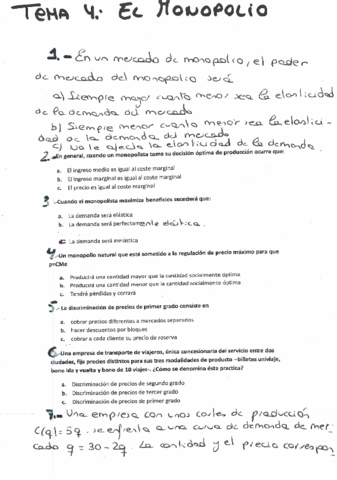 TEMA 4: EL MONOPOLIO
1.- En un mercado de monopolio, el poder
de mercado del monopolio será
a) Siempre mayor cuanto menor sea la elasticidad
de la demanda del mercado
b) Siempre menor cuanto menor sea la elastici-
dad de la demanda del mercado
c) No le afecta la elasticidad de la demanda.
2.-En general, cuando un monopolista toma su decisión óptima de producción ocurre que:
a. El ingreso medio es igual al coste marginal
b. El ingreso marginal es igual al coste marginal
c. El precio es igual al coste marginal
3.-Cuando el monopolista maximiza beneficios sucederá que:
a. La demanda será elástica
b. La demanda será perfectamente elástica.
c. La demanda será inelástica
4.-Un monopolio natural que está sometido a la regulación de precio máximo para que
p=CMe
a. Producirá una cantidad mayor que la cantidad socialmente óptima
b. Producirá una cantidad menor que la cantidad socialmente óptima
c. Tendrá pérdidas y cerrará
5.-La discriminación de precios de primer grado consiste en
a. cobrar precios diferentes a mercados separados
b. hacer descuentos por bloques
c. cobrar a cada cliente su precio de reserva
6.-Una empresa de transporte de viajeros, única concesionaria del servicio entre dos
ciudades, fija precios distintos para sus tres modalidades de producto –billetes univiaje,
bono ida y vuelta y bono de 10 viajes-. ¿Cómo se denomina ésta practica?
a. Discriminación de precios de segundo grado
b. Discriminación de precios de tercer grado
c. Discriminación de precios de primer grado
7.- Una empresa con unos costes de producción
C(q)=5q. se enfrenta a una curva de demanda de mer-
cado q=30-2q. La cantidad y el precio correspon